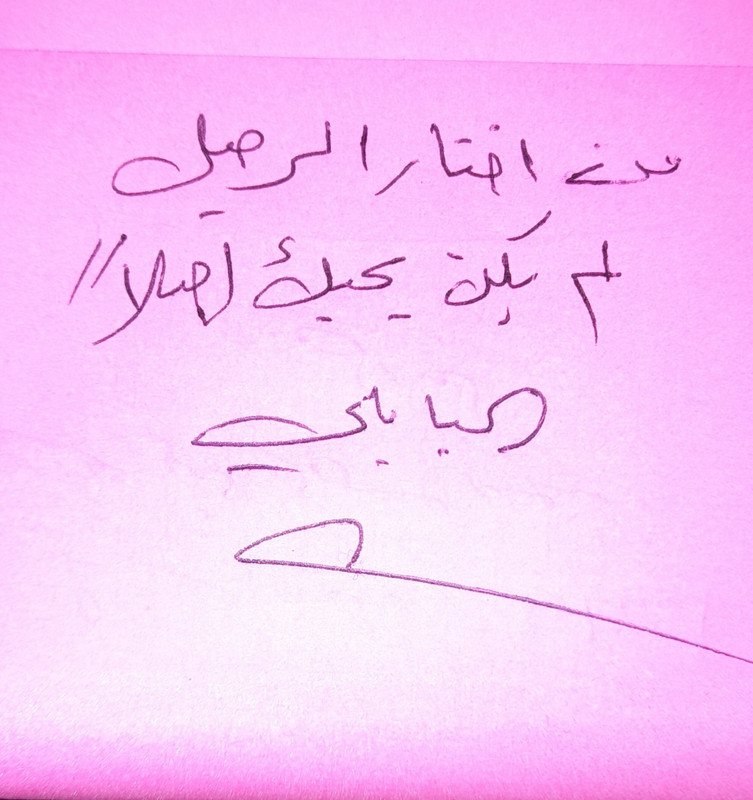 من اختار الرحيل
لم يكن يحبك أصلا //
البابلي